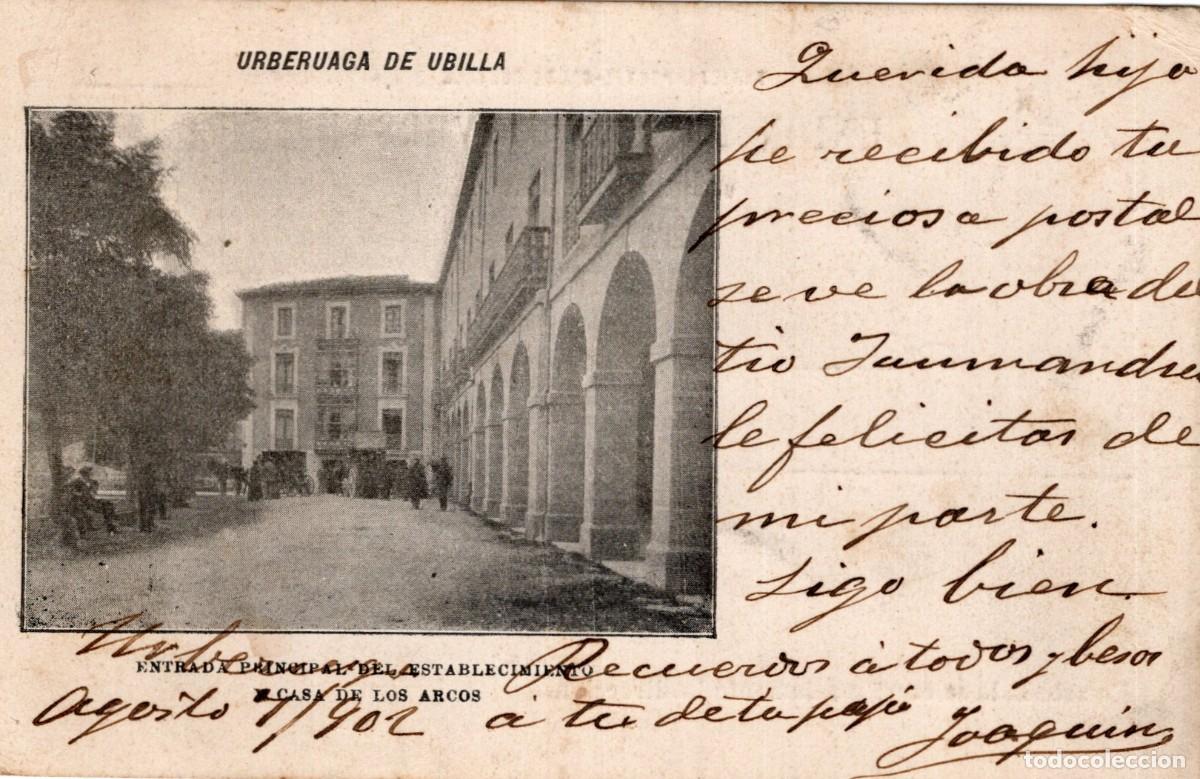 URBERUAGA DE UBILLA
Querida hija
he recibido tu
preciosa postal
se ve la obra de
tio
le felicitas de
mi parte.
Sigo bien.
Recuerdos á todos y besos
á tu de tu papá
Joaquin
Urberuaga
Agosto 1/902
ENTRADA PRINCIPAL DEL ESTABLECIMIENTO
Y CASA DE LOS ARCOS
todocoleccion